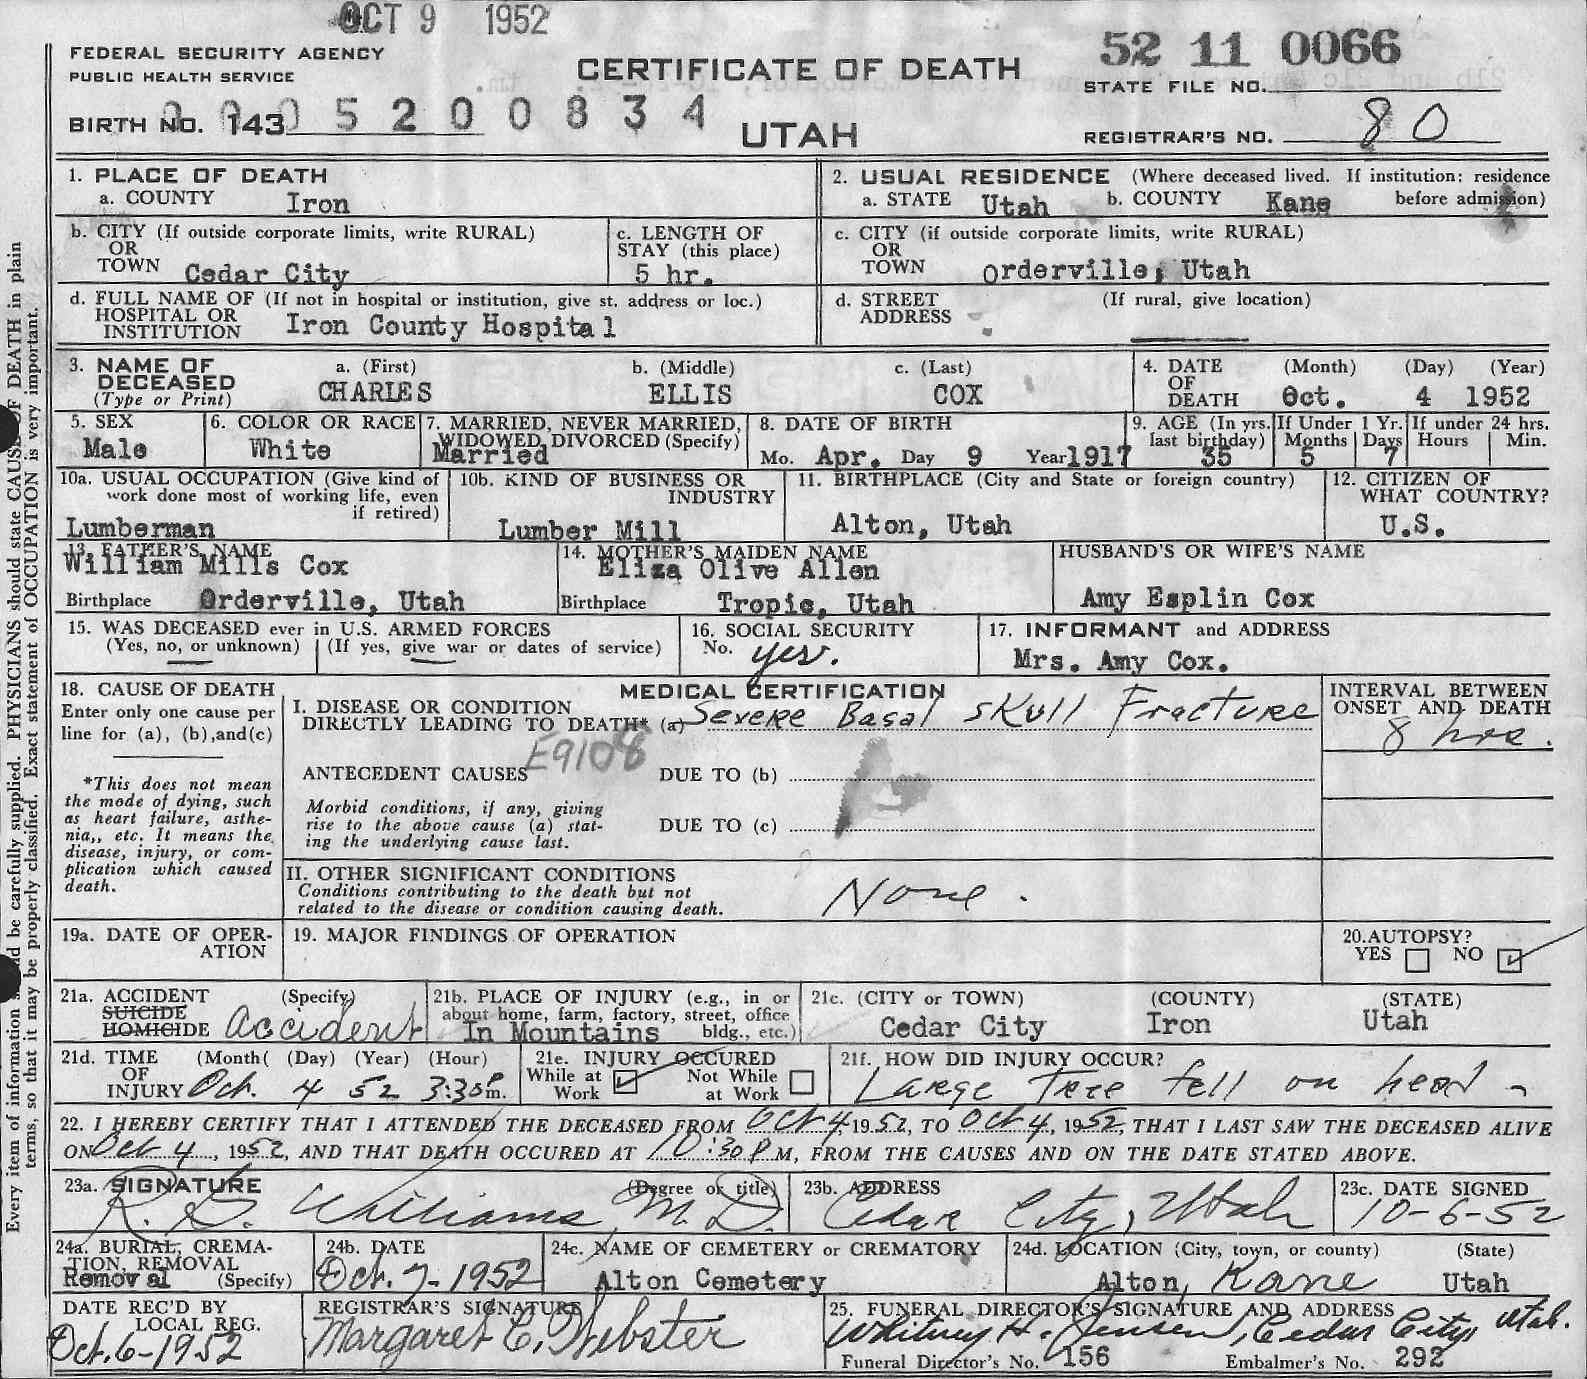 OCT 9 1952
FEDERAL SECURITY AGENCY
PUBLIC HEALTH SERVICE
CERTIFICATE OF DEATH
52 11 0066
STATE FILE NO.
BIRTH NO. 143 5200834
UTAH
REGISTRAR'S NO. 80
1. PLACE OF DEATH
a. COUNTY Iron
2. USUAL RESIDENCE (Where deceased lived. If institution: residence before admission)
a. STATE Utah b. COUNTY Kane
b. CITY (If outside corporate limits, write RURAL)
OR
TOWN Cedar City
c. LENGTH OF
STAY (this place)
5 hr.
c. CITY (if outside corporate limits, write RURAL)
OR
TOWN Orderville, Utah
d. FULL NAME OF (If not in hospital or institution, give st. address or loc.)
HOSPITAL OR
INSTITUTION Iron County Hospital
d. STREET (If rural, give location)
ADDRESS
3. NAME OF
DECEASED
(Type or Print)
a. (First) b. (Middle) c. (Last)
CHARLES ELLIS COX
4. DATE
OF
DEATH
(Month) (Day) (Year)
Oct. 4 1952
5. SEX
Male
6. COLOR OR RACE
White
7. MARRIED, NEVER MARRIED,
WIDOWED, DIVORCED (Specify)
Married
8. DATE OF BIRTH
Mo. Apr. Day 9 Year 1917
9. AGE (In yrs.
last birthday)
35
If Under 1 Yr.
Months Days
5 7
If under 24 hrs.
Hours Min.
10a. USUAL OCCUPATION (Give kind of
work done most of working life, even
if retired)
Lumberman
10b. KIND OF BUSINESS OR
INDUSTRY
Lumber Mill
11. BIRTHPLACE (City and State or foreign country)
Alton, Utah
12. CITIZEN OF
WHAT COUNTRY?
U.S.
13. FATHER'S NAME
William Mills Cox
Birthplace Orderville, Utah
14. MOTHER'S MAIDEN NAME
Eliza Olive Allen
Birthplace Tropic, Utah
HUSBAND'S OR WIFE'S NAME
Amy Esplin Cox
15. WAS DECEASED ever in U.S. ARMED FORCES
(Yes, no, or unknown) (If yes, give war or dates of service)
16. SOCIAL SECURITY
No. yes.
17. INFORMANT and ADDRESS
Mrs. Amy Cox.
18. CAUSE OF DEATH
Enter only one cause per
line for (a), (b),and(c)
*This does not mean
the mode of dying, such
as heart failure, asthe-
nia,, etc. It means the
disease, injury, or com-
plication which caused
death.
MEDICAL CERTIFICATION
I. DISEASE OR CONDITION
DIRECTLY LEADING TO DEATH* (a) Severe Basal Skull Fracture
E9108
ANTECEDENT CAUSES DUE TO (b)
Morbid conditions, if any, giving
rise to the above cause (a) stat-
ing the underlying cause last.
DUE TO (c)
INTERVAL BETWEEN
ONSET AND DEATH
8 hrs.
II. OTHER SIGNIFICANT CONDITIONS
Conditions contributing to the death but not
related to the disease or condition causing death.
None.
19a. DATE OF OPER-
ATION
19. MAJOR FINDINGS OF OPERATION
20.AUTOPSY?
YES NO
21a. ACCIDENT (Specify)
SUICIDE
HOMICIDE Accident
21b. PLACE OF INJURY (e.g., in or
about home, farm, factory, street, office
bldg., etc.)
In Mountains
21c. (CITY or TOWN) (COUNTY) (STATE)
Cedar City Iron Utah
21d. TIME (Month( (Day) (Year) (Hour)
OF
INJURY Oct. 4 52 3:30 P m.
21e. INJURY OCCURED
While at Work Not While at Work
21f. HOW DID INJURY OCCUR?
Large Tree fell on head
22. I HEREBY CERTIFY THAT I ATTENDED THE DECEASED FROM Oct 4, 1952, TO Oct 4, 1952, THAT I LAST SAW THE DECEASED ALIVE
ON Oct 4, 1952, AND THAT DEATH OCCURED AT 10:30 P M, FROM THE CAUSES AND ON THE DATE STATED ABOVE.
23a. SIGNATURE (Degree or title)
Williams M.D.
23b. ADDRESS
Cedar City, Utah
23c. DATE SIGNED
10-6-52
24a. BURIAL, CREMA-
TION, REMOVAL
(Specify)
Removal
24b. DATE
Oct. 7-1952
24c. NAME OF CEMETERY or CREMATORY
Alton Cemetery
24d. LOCATION (City, town, or county) (State)
Alton, Kane Utah
DATE REC'D BY
LOCAL REG.
Oct. 6-1952
REGISTRAR'S SIGNATURE
Margaret C. Webster
25. FUNERAL DIRECTOR'S SIGNATURE AND ADDRESS
Whitney H. Jensen, Cedar City, Utah.
Funeral Director's No. 156 Embalmer's No. 292